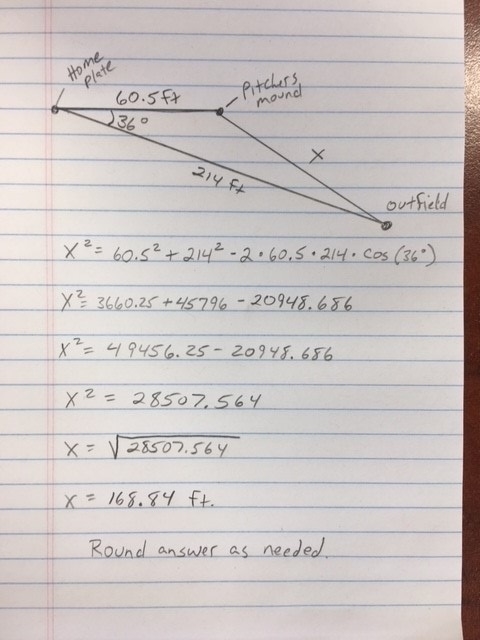 Home
plate
60.5 ft
Pitchers
mound
36°
x
214 ft
outfield
x² = 60.5² + 214² - 2 · 60.5 · 214 · cos (36°)
x² = 3660.25 + 45796 - 20948.686
x² = 49456.25 - 20948.686
x² = 28507.564
x = √28507.564
x = 168.84 ft.
Round answer as needed.